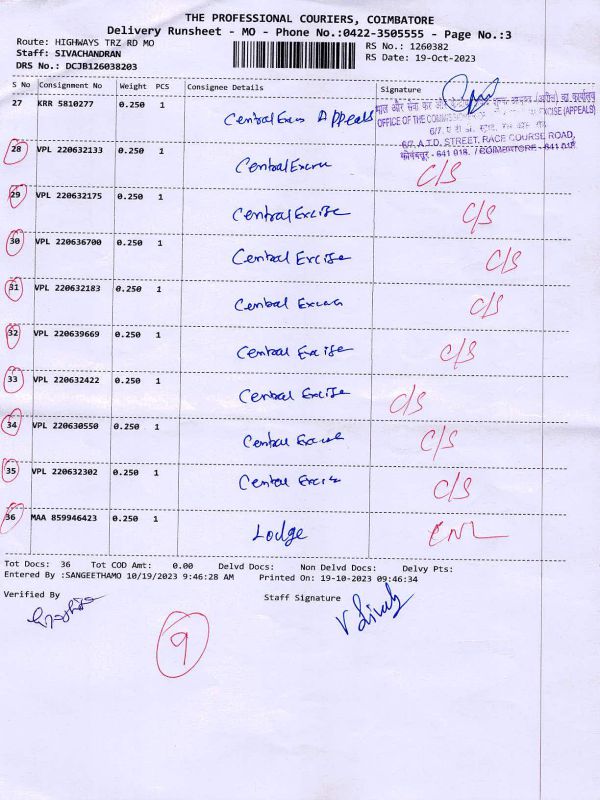 THE PROFESSIONAL COURIERS, COIMBATORE
Delivery Runsheet - MO - Phone No.:0422-3505555 - Page No.:3
Route: HIGHWAYS TRZ RD MO
Staff: SIVACHANDRAN
DRS No.: DCJB126038203
RS No.: 1260382
RS Date: 19-Oct-2023
S No Consignment No Weight PCS Consignee Details Signature
27 KRR 5810277 0.250 1 Central Excise Appeals
OFFICE OF THE EXCISE (APPEALS)
6/7, A.T.D. STREET, RACE COURSE ROAD,
कोयंबत्तूर - 641 018. / COIMBATORE - 641 018.
28 VPL 220632133 0.250 1 Central Excise C/S
29 VPL 220632175 0.250 1 Central Excise C/S
30 VPL 220636700 0.250 1 Central Excise C/S
31 VPL 220632183 0.250 1 Central Excise C/S
32 VPL 220639669 0.250 1 Central Excise C/S
33 VPL 220632422 0.250 1 Central Excise C/S
34 VPL 220630550 0.250 1 Central Excise C/S
35 VPL 220632302 0.250 1 Central Excise C/S
36 MAA 859946423 0.250 1 Lodge CNL
Tot Docs: 36 Tot COD Amt: 0.00 Delvd Docs: Non Delvd Docs: Delvy Pts:
Entered By :SANGEETHAMO 10/19/2023 9:46:28 AM Printed On: 19-10-2023 09:46:34
Verified By Staff Signature
9